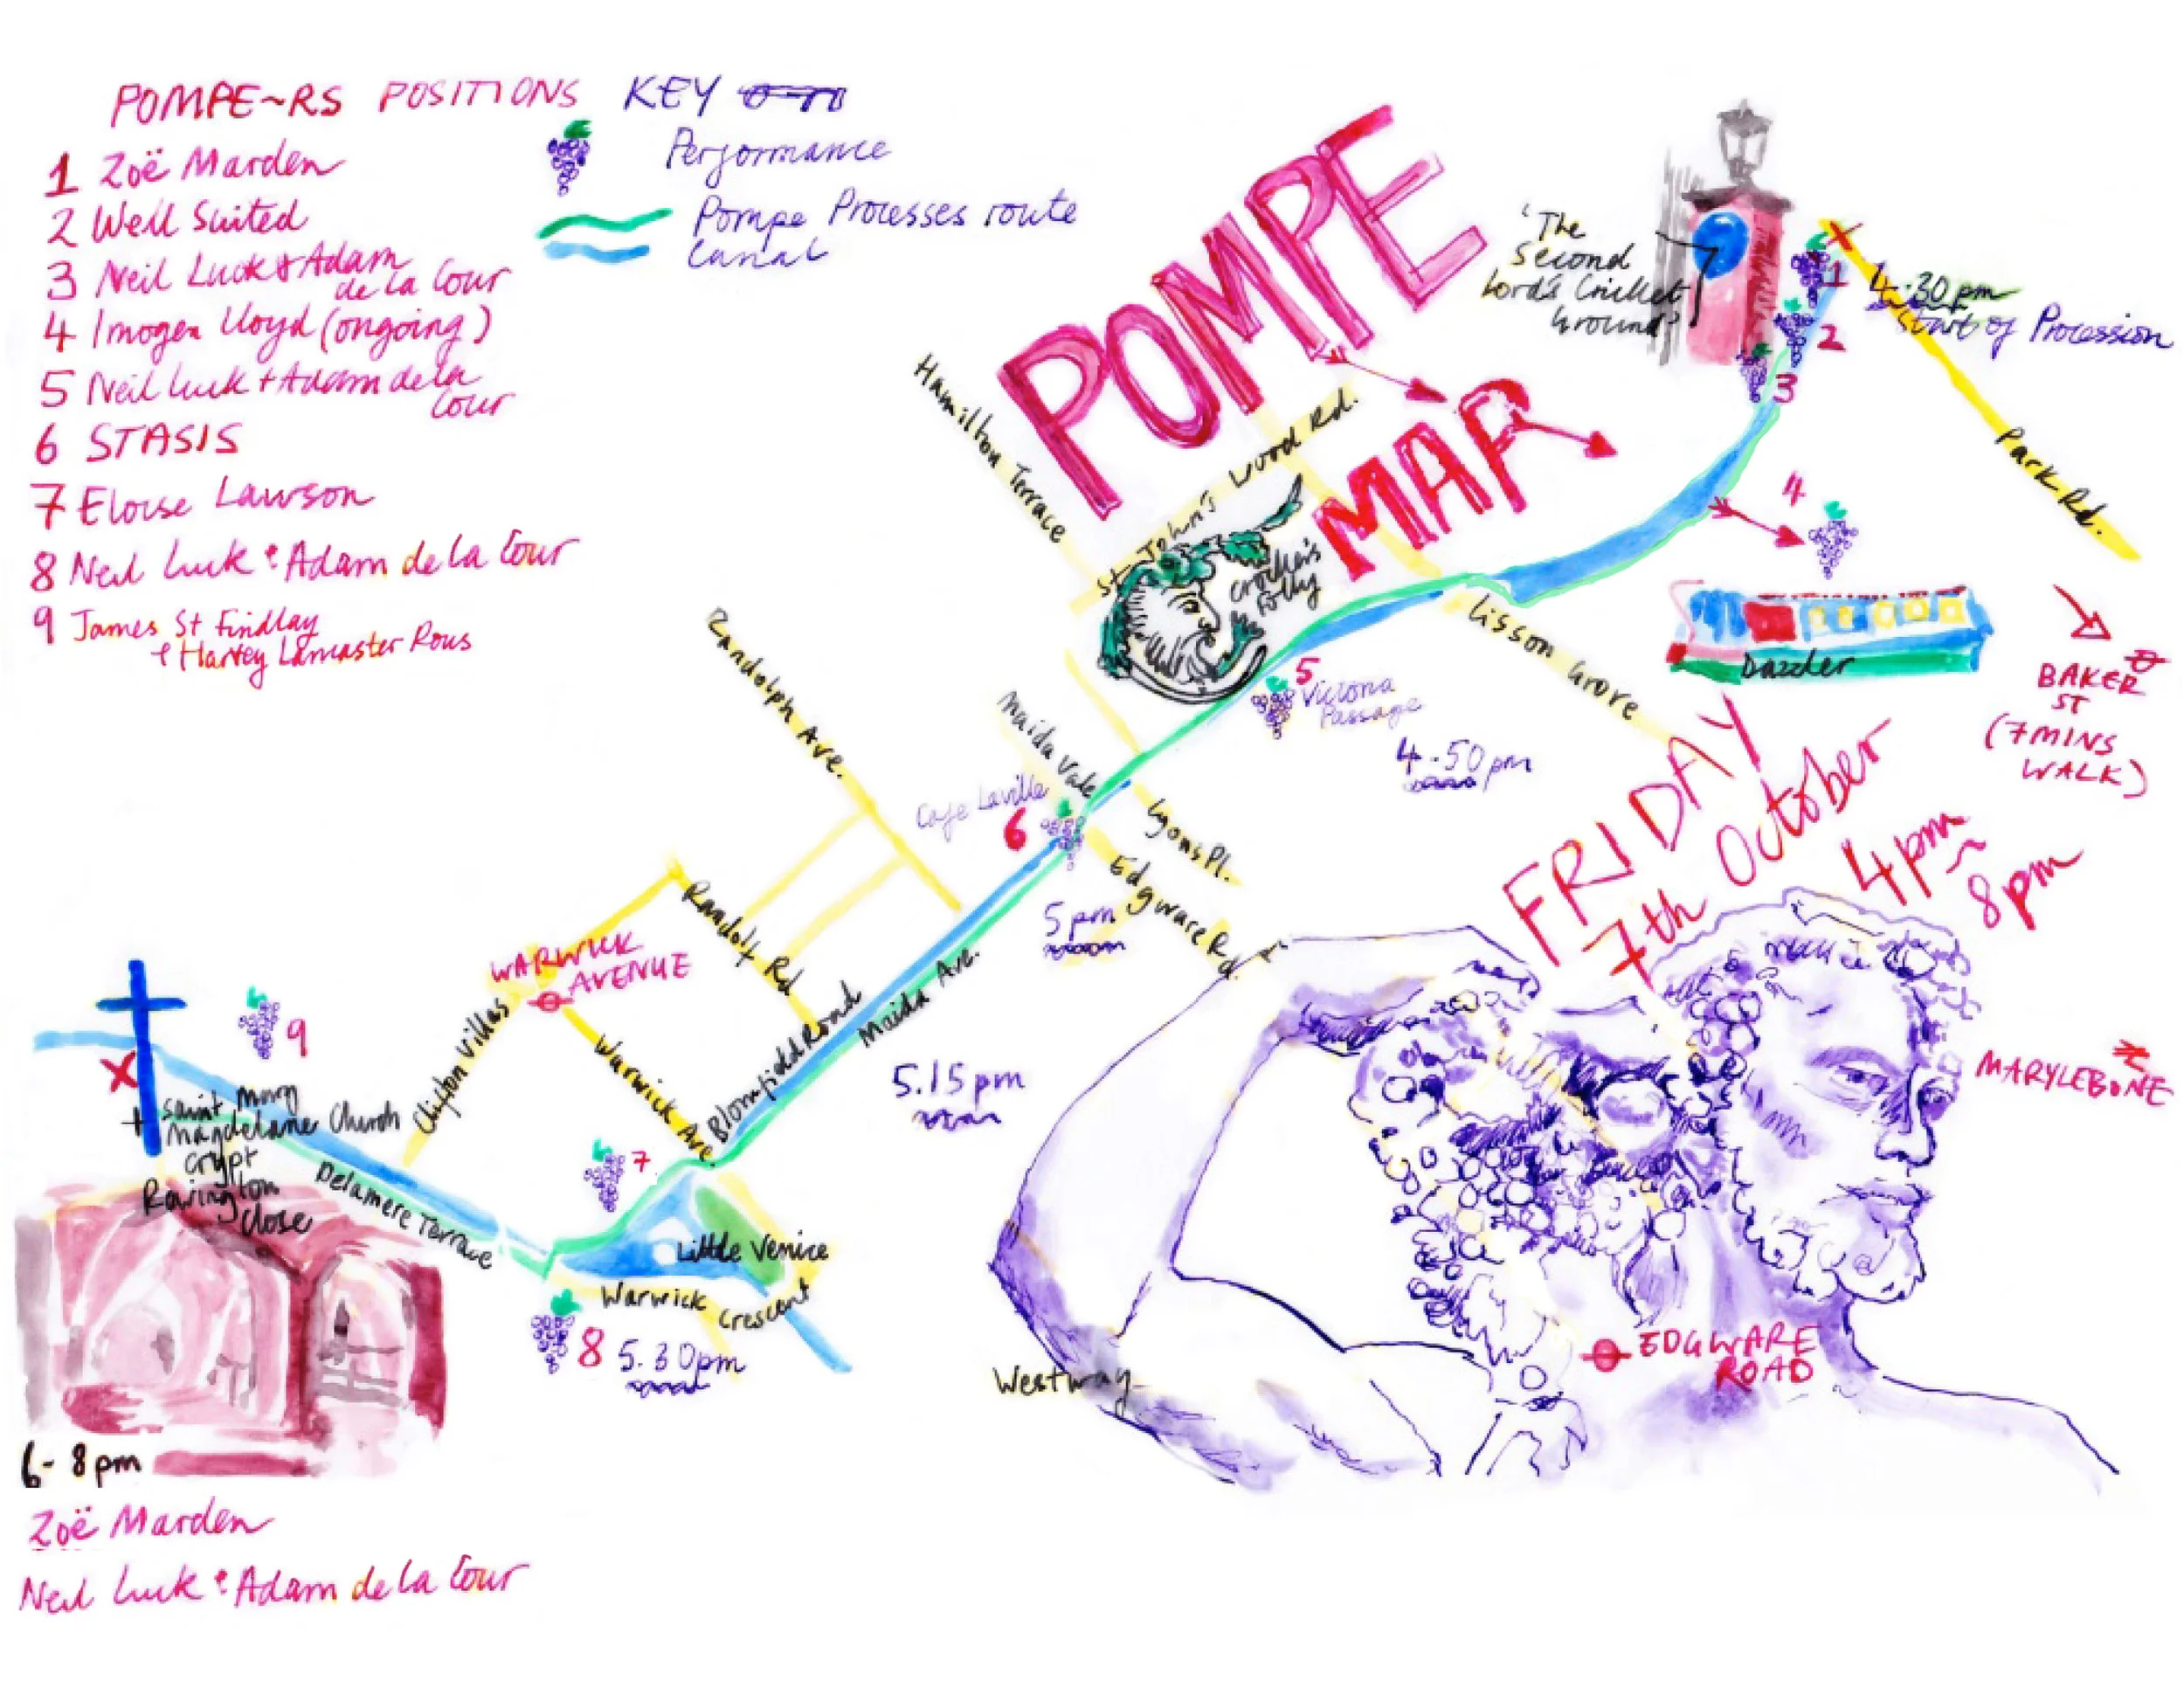 POMPE~RS POSITIONS
1 Zoë Marden
2 Well Suited
3 Neil Luck & Adam
de la Cour
4 Imogen Lloyd (ongoing)
5 Neil Luck + Adam de la
Cour
6 STASIS
7 Eloise Lawson
8 Neil Luck & Adam de la Cour
9 James St Findlay
& Harvey Lancaster Rous
KEY
Performance
Pompe Processes route
Canal
POMPE
MAP
'The
Second
Lord's Cricket
Ground'
1
2
3
4.30pm
Start of Procession
Park Rd.
4
Dazzler
BAKER
ST
(7 MINS
WALK)
Hamilton Terrace
St John's Wood Rd.
Crocker's
Folly
Lisson Grove
5
Victoria
Passage
4.50pm
FRIDAY
7th October
4pm~
8pm
Randolph Ave.
Maida Vale
Cafe Laville
6
Lyons Pl.
Edgware Rd.
5pm
Randolf Rd
WARWICK
AVENUE
Clifton Villas
Warwick Ave.
Blomfield Road
Maida Ave.
5.15pm
MARYLEBONE
9
Saint Mary
Magdelane Church
+
Crypt
Rowington
Close
Delamere Terrace
7
Little Venice
Warwick Crescent
8 5.30pm
Westway
EDGWARE
ROAD
6-8pm
Zoë Marden
Neil Luck & Adam de la Cour